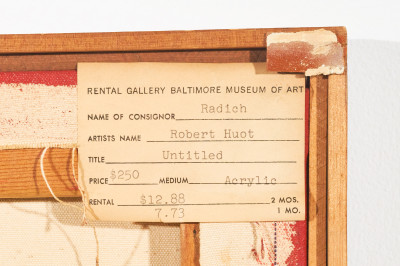 RENTAL GALLERY BALTIMORE MUSEUM OF ART
NAME OF CONSIGNOR Radich
ARTISTS NAME Robert Huot
TITLE Untitled
PRICE $250 MEDIUM Acrylic
RENTAL $12.88 2 MOS.
7.73 1 MO.